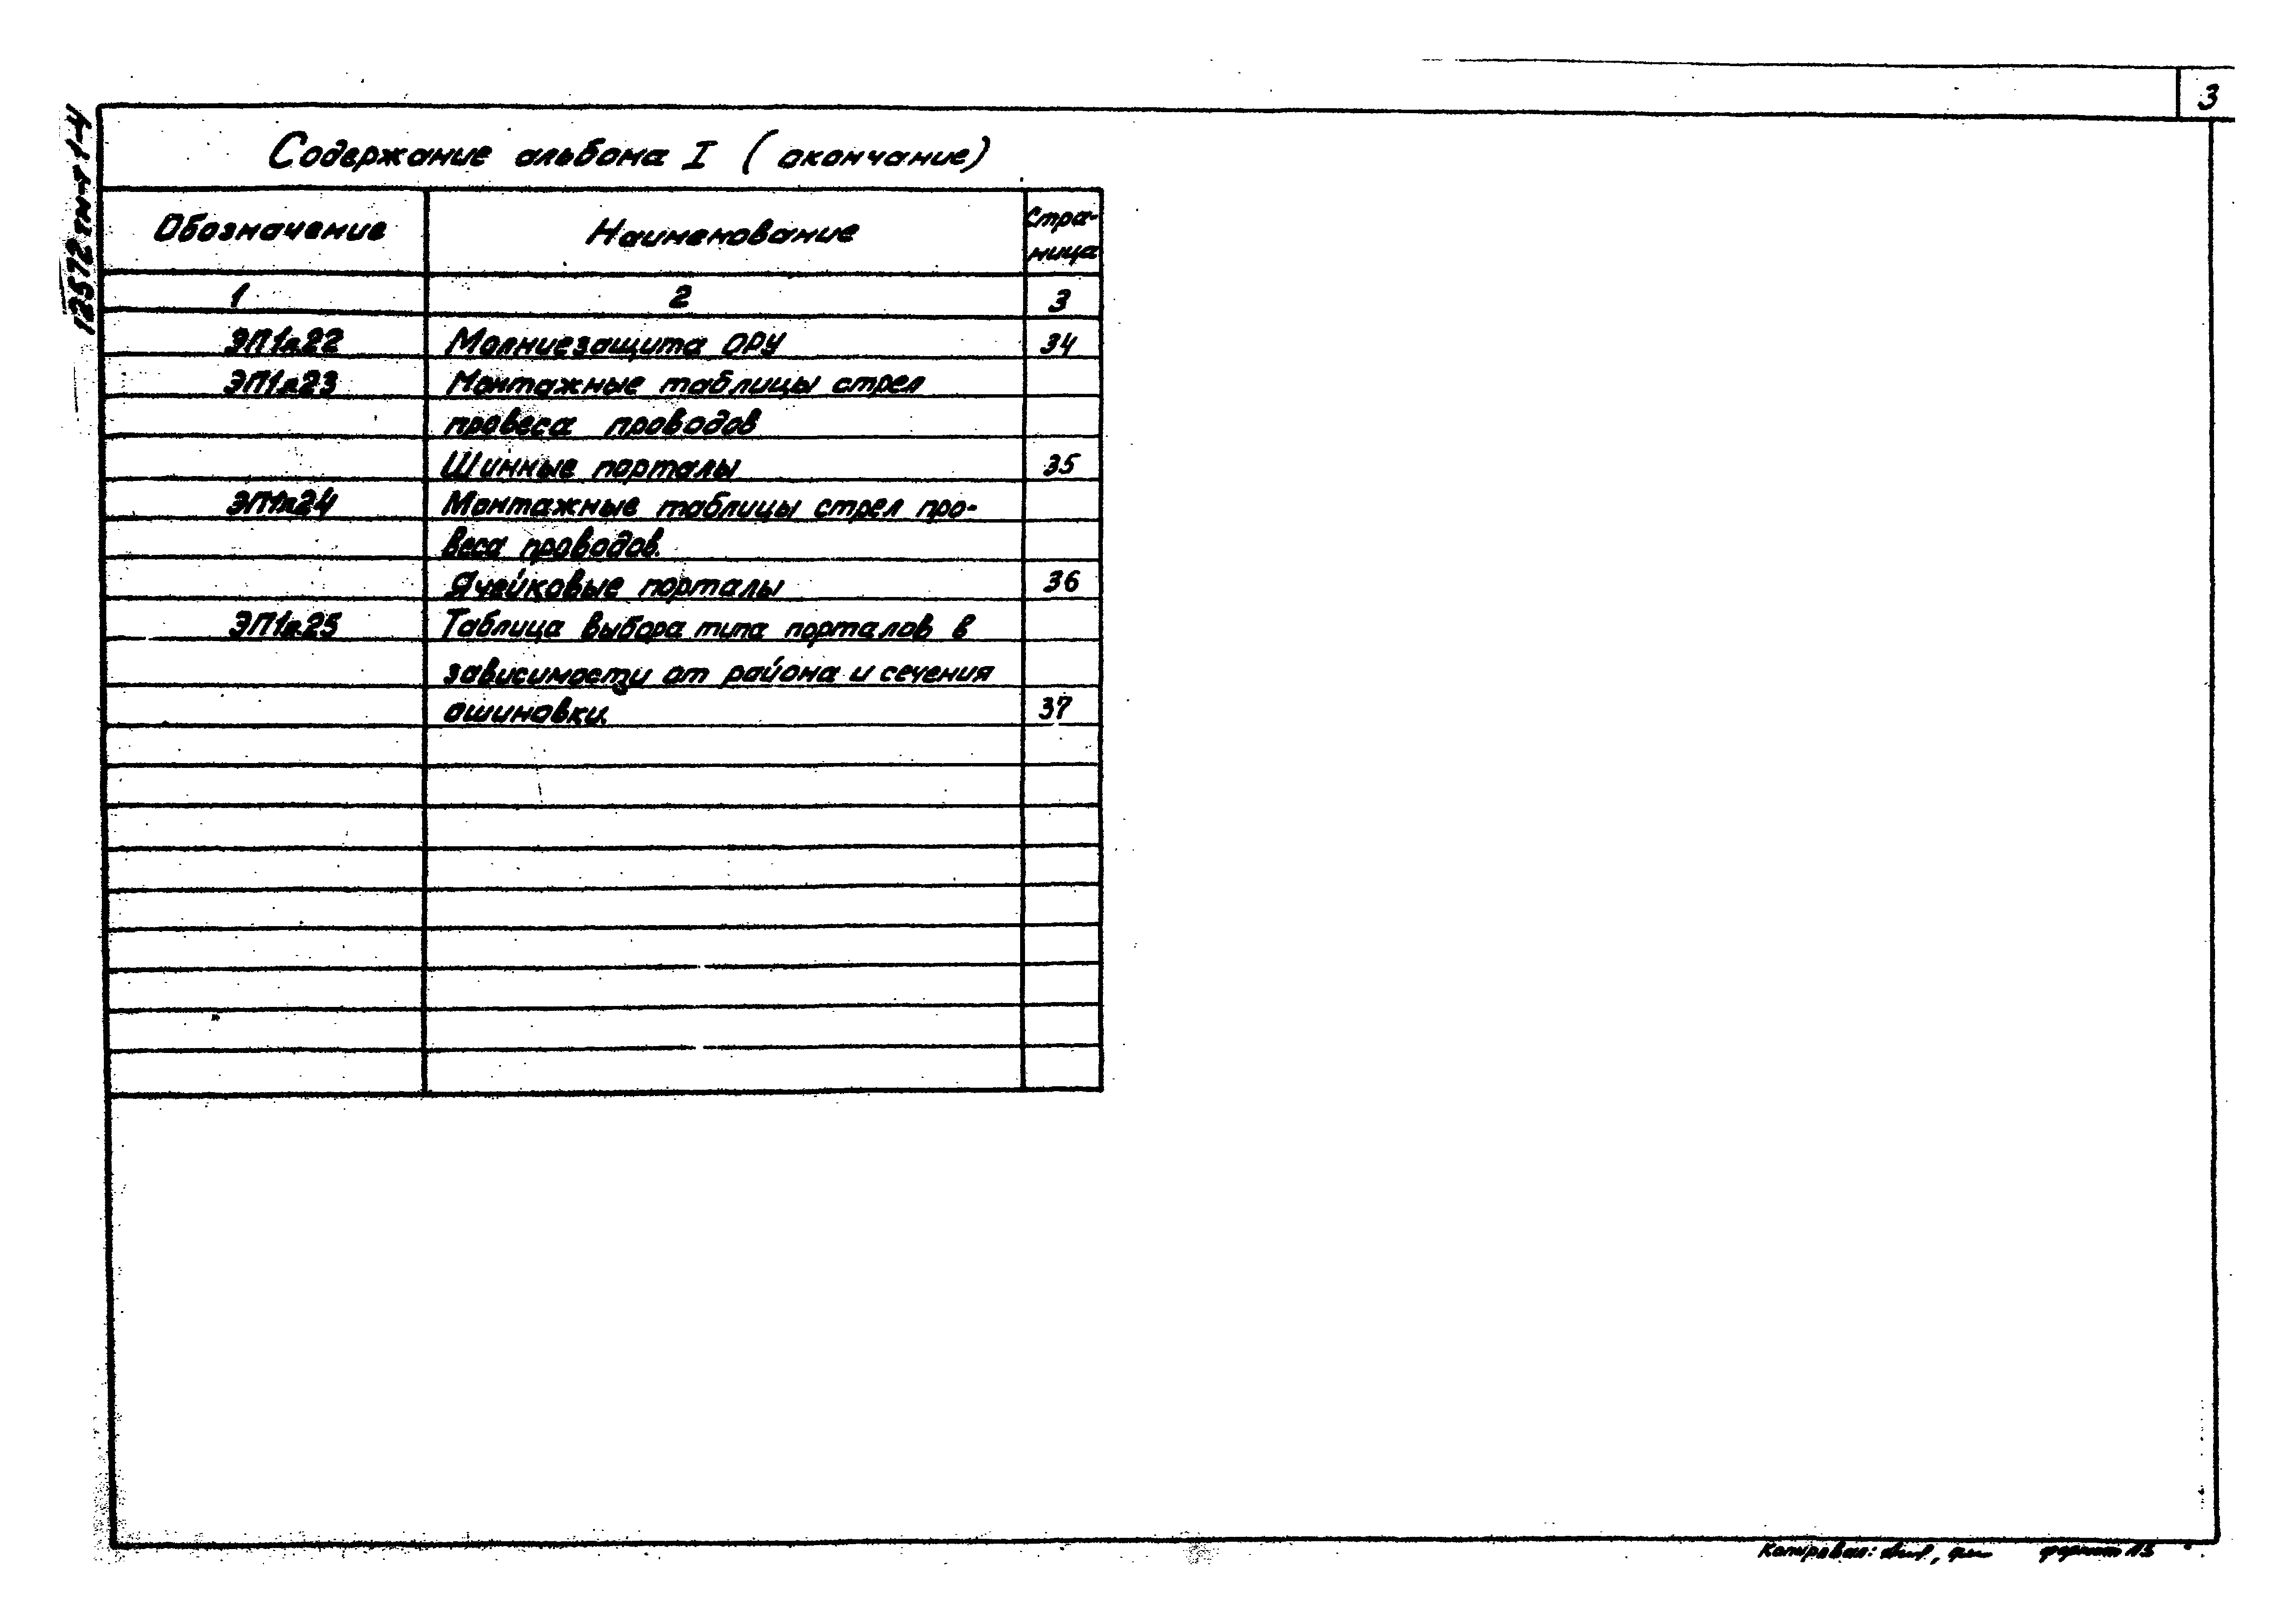 3
12572тм-т1-4
Содержание альбома I (окончание)
Обозначение Наименование Стра-
ница
1 2 3
ЭП1л22 Молниезащита ОРУ 34
ЭП1л23 Монтажные таблицы стрел
провеса проводов
Шинные порталы 35
ЭП1л24 Монтажные таблицы стрел про-
веса проводов.
Ячейковые порталы 36
ЭП1л25 Таблица выбора типа порталов в
зависимости от района и сечения
ошиновки. 37
Копировал: формат